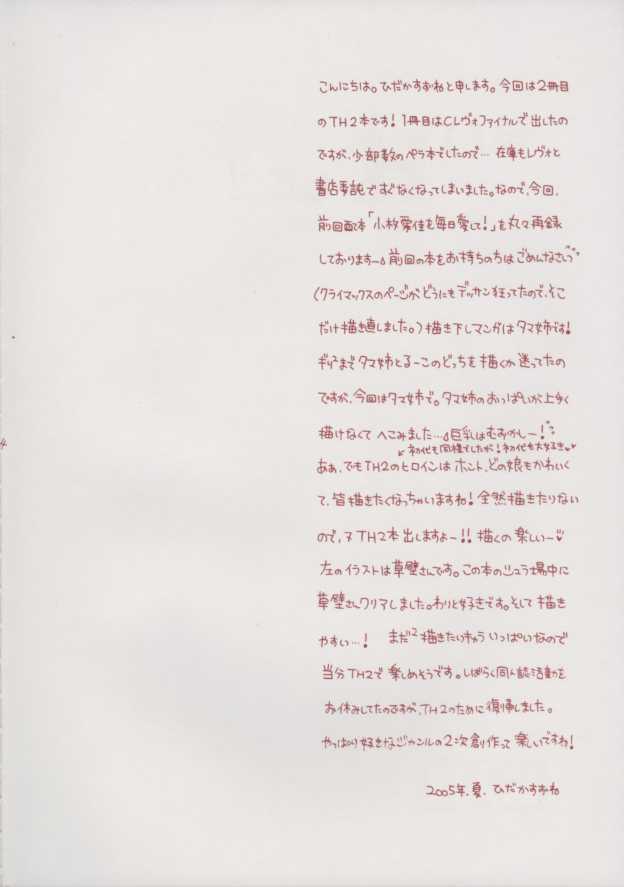 こんにちは。ひだかすずねと申します。今回は2冊目
のTH2本です！1冊目はCLヴォファイナルで出したの
ですが、少部数のペラ本でしたので… 在庫もレヴォと
書店委託ですぐなくなってしまいました。なので、今回、
前回の本「小牧愛佳を毎日愛して！」を丸々再録
しております～。前回の本をお持ちの方はごめんなさいっ
(クライマックスのページがどうにもデッサン狂ってたので、そこ
だけ描き直しました。)描き下しマンガはタマ姉です！
ギリ2までタマ姉とるーこのどっちを描くか迷ってたの
ですが、今回はタマ姉で。タマ姉のおっぱいが上手く
描けなくてへこみました…。巨乳はむずかしー！
↙初代も同様でしたが！初代も大好き♥♥
ああ、でもTH2のヒロインはホント、どの娘もかわいく
て、皆描きたくなっちゃいますね！全然描きたりない
ので、又TH2本出しますよ～!!描くの楽しい～♥
左のイラストは草壁さんです。この本のシュラ場中に
草壁さんクリアしました。わりと好きです。そして描き
やすい…！ まだ2描きたいキャラいっぱいなので
当分TH2で楽しめそうです。しばらく同人誌活動を
お休みしてたのですが、TH2のために復帰しました。
やっぱり好きなジャンルの2次創作って楽しいですね！
2005年、夏、ひだかすずね